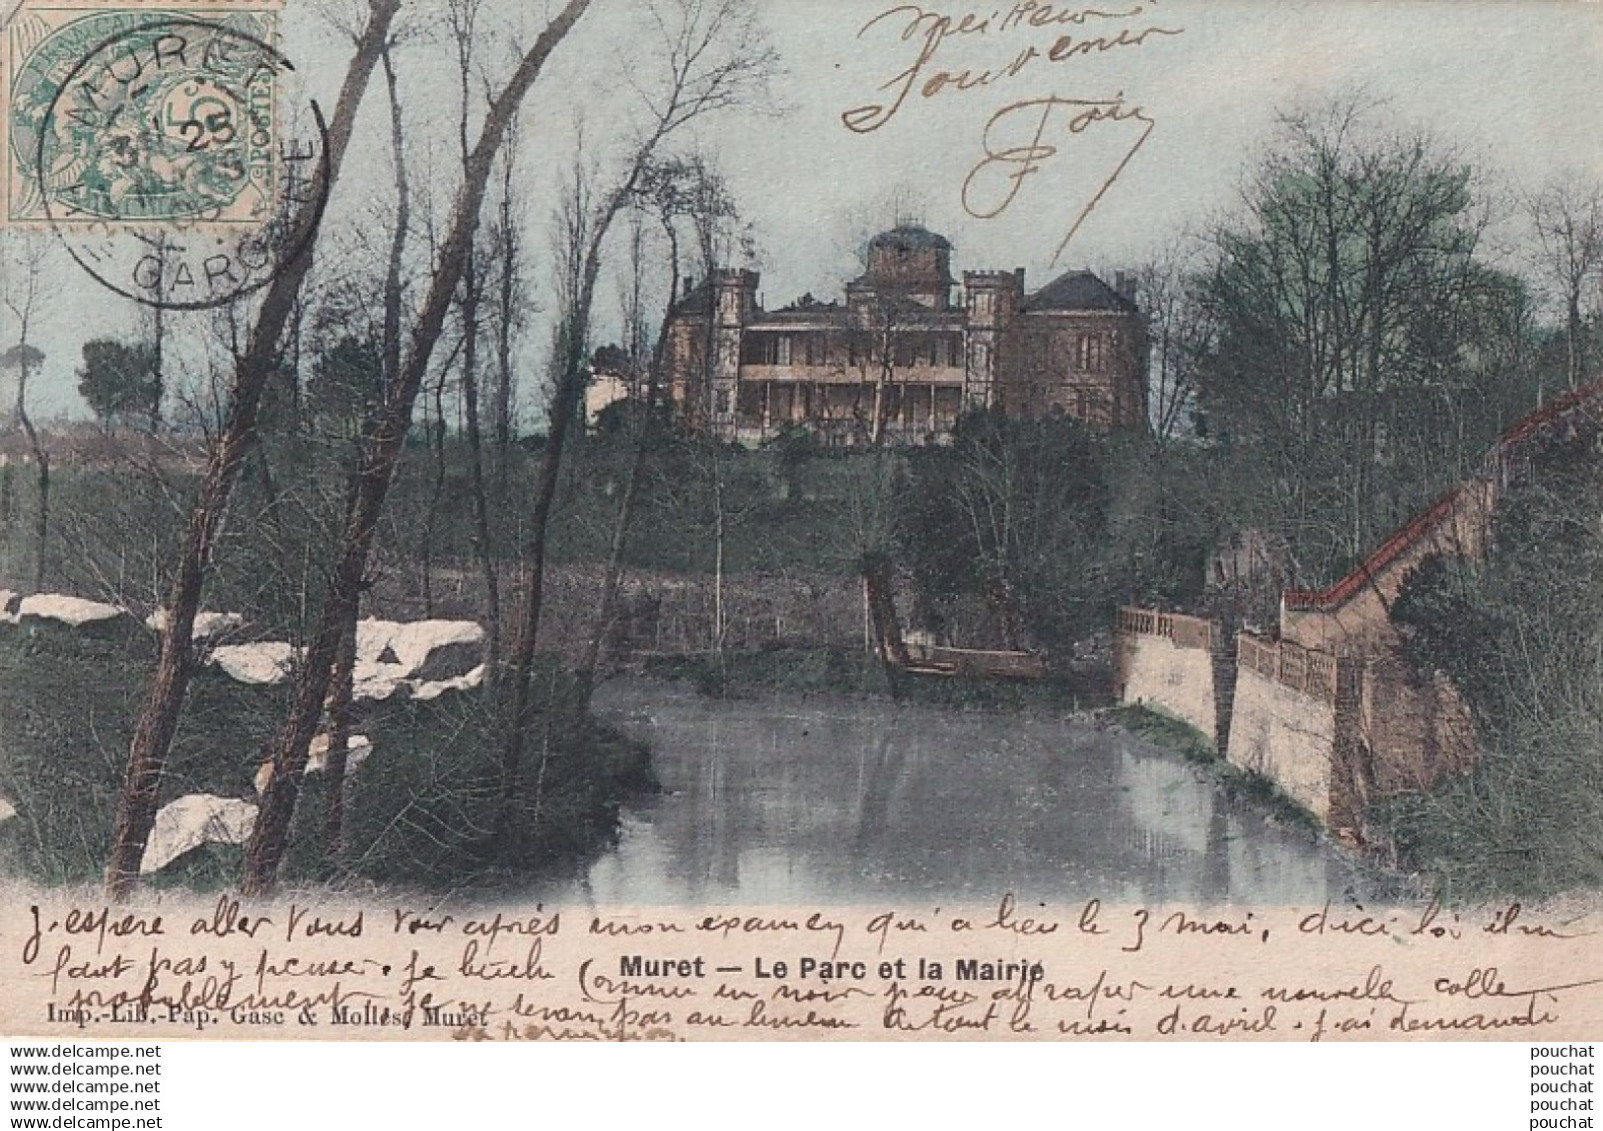 Meilleur
Souvenir
MURET
Hte GARONNE
25
POSTES
J'espère aller vous voir après mon examen qui a lieu le 3 mai, d'ici là il ne
faut pas y penser. Je bûche comme un noir pour attraper une nouvelle colle
Muret — Le Parc et la Mairie
probablement. Je ne serai pas au bureau de tout le mois d'avril. J'ai demandé
Imp.-Lib.-Pap. Gasc & Molles, Muret
la permission.
www.delcampe.net pouchat
www.delcampe.net pouchat
www.delcampe.net pouchat
www.delcampe.net pouchat
www.delcampe.net pouchat